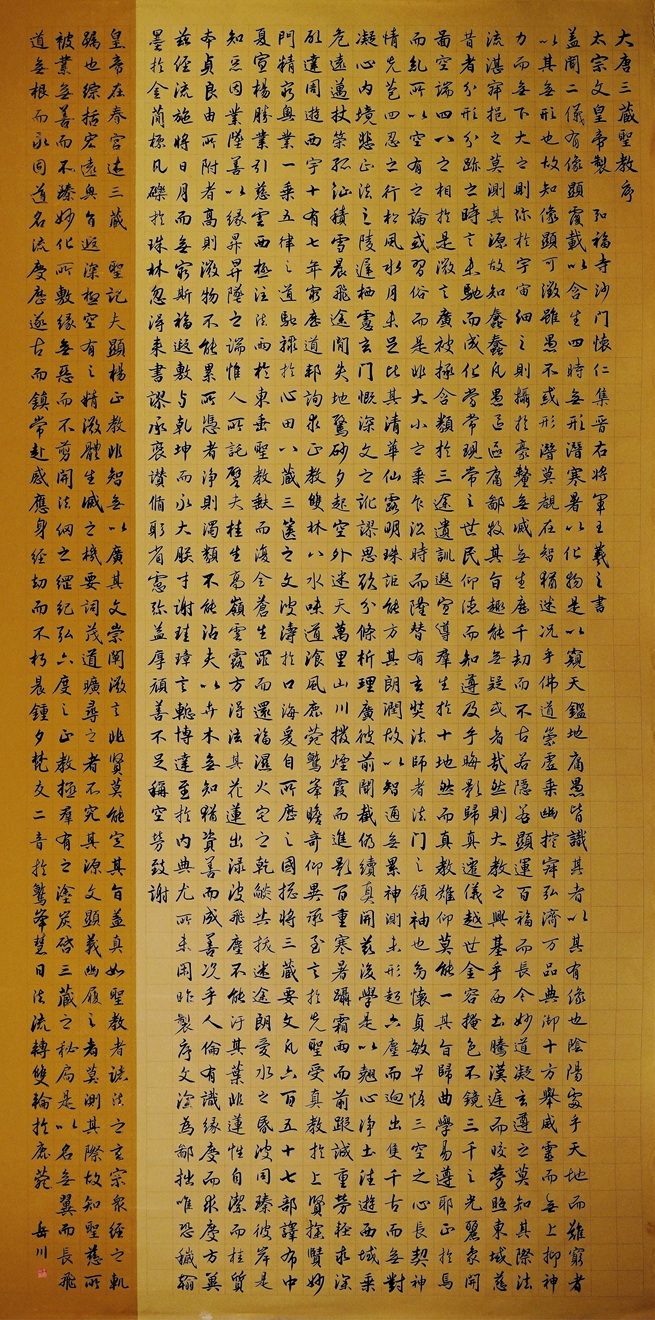 大唐三藏聖教序
太宗文皇帝製 弘福寺沙門懷仁集晉右將軍王羲之書
蓋聞二儀有像顯覆載以含生四時無形潛寒暑以化物是以窺天鑑地庸愚皆識其者以其有緣也陰陽處乎天地而難窮者
以其無形也故知像顯可徵雖愚不或形潛莫覩在智猶迷況乎佛道崇虛乘幽控寂弘濟万品典御十方舉威靈而無上抑神
力而無下大之則弥於宇宙細之則攝於豪釐無滅無生歷千劫而不古若隱若顯運百福而長今妙道凝玄遵之莫知其際法
流湛寂挹之莫測其源故知蠢蠢凡愚區區庸鄙投其旨趣能無疑或者哉然則大教之興基乎西土騰漢廷而皎夢照東域慈
昔者分形分跡之時言未馳而成化當常現常之世民仰德而知遵及乎晦影歸真遷儀越世金容掩色不鏡三千之光麗象開
圖空端四八之相於是微言廣被拯含類於三途遺訓遐宣導羣生於十地然而真教難仰莫能一其旨歸曲學易遵耶正於焉
而亂所以空有之論或習俗而是非大小之乘乍沿時而隆替有玄奘法師者法門之領袖也幼懷貞敏早悟三空之心長契神
情先苞四忍之行松風水月未足比其清華仙露明珠詎能方其朗潤故以智通無累神測未形超六塵而迥出隻千古而無對
凝心內境悲正法之陵遲栖慮玄門慨深文之訛謬思欲分條析理廣彼前聞截偽續真開茲後學是以翹心淨土法遊西域乘
危遠邁杖策孤征積雪晨飛途間失地驚砂夕起空外迷天萬里山川撥煙霞而進影百重寒暑躡霜雨而前蹤誠重勞輕求深
願達周遊西宇十有七年窮歷道邦詢求正教雙林八水味道飡風鹿菀鷲峯瞻奇仰異承至言於先聖受真教於上賢探賾妙
門精窮奧業一乘五律之道馳驟於心田八藏三篋之文波濤於口海爰自所歷之國揔將三藏要文凡六百五十七部譯布中
夏宣楊勝業引慈雲西極注法雨於東垂聖教缺而復全蒼生罪而還福濕火宅之乾燄共拔迷途朗愛水之昏波同臻彼岸是
知惡因業墜善以緣昇昇墜之端惟人所託譬夫桂生高嶺雲露方得泫其花蓮出淥波飛塵不能汙其葉非蓮性自潔而桂質
本貞良由所附者高則微物不能累所憑者淨則濁類不能沾夫以卉木無知猶資善而成善況乎人倫有識緣慶而求慶方冀
茲經流施將日月而無窮斯福遐敷与乾坤而永大朕才謝珪璋言慙博達至於內典尤所未閑昨製序文深為鄙拙唯恐穢翰
墨於金簡標瓦礫於珠林忽得來書謬承褒讚循躬省慮弥益厚顏善不足稱空勞致謝
皇帝在春宮述三藏 聖記夫顯楊正教非智無以廣其文崇闡微言非賢莫能定其旨蓋真如聖教者諸法之玄宗眾經之軌
躅也綜括宏遠奧旨遐深極空有之精微體生滅之機要詞茂道曠尋之者不究其源文顯義幽履之者莫測其際故知聖慈所
被業無善而不臻妙化所敷緣無惡而不剪開法網之綱紀弘六度之正教拯羣有之塗炭啓三藏之秘扃是以名無翼而長飛
道無根而永固道名流慶歷遂古而鎮常赴感應身經劫而不朽晨鍾夕梵交二音於鷲峯慧日法流轉雙輪於鹿菀 岳川